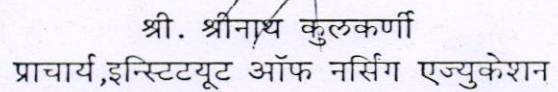 श्री. श्रीनाथ कुलकर्णी
प्राचार्य,इन्स्टिटयूट ऑफ नर्सिंग एज्युकेशन